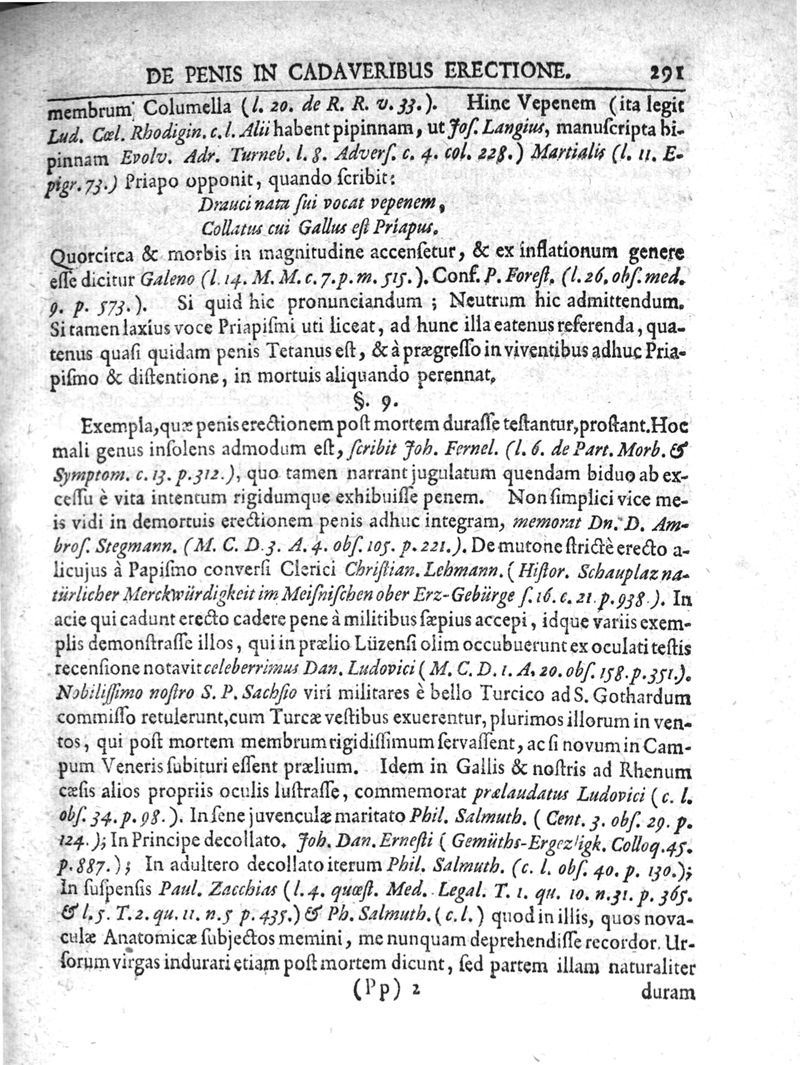 DE PENIS IN CADAVERIBUS ERECTIONE. 291
membrum Columella (l. 20. de R. R. v. 33.). Hinc Vepenem (ita legit
Lud. Cœl. Rhodigin. c. l. Alii habent pipinnam, ut Joſ. Langius, manuſcripta bi-
pinnam Evolv. Adr. Turneb. l. 8. Adverſ. c. 4. col. 228.) Martialis (l. 11. E-
pigr. 73.) Priapo opponit, quando ſcribit:
Drauci nata ſui vocat vepenem,
Collatus cui Gallus eſt Priapus.
Quorcirca & morbis in magnitudine accenſetur, & ex inflationum genere
eſſe dicitur Galeno (l. 14. M. M. c. 7. p. m. 515.). Conf. P. Foreſt. (l. 26. obſ. med.
9. p. 573.). Si quid hic pronunciandum; Neutrum hic admittendum.
Si tamen laxius voce Priapiſmi uti liceat, ad hunc illa eatenus referenda, qua-
tenus quaſi quidam penis Tetanus eſt, & à prægreſſo in viventibus adhuc Pria-
piſmo & diſtentione, in mortuis aliquando perennat.
§. 9.
Exempla, quæ penis erectionem poſt mortem duraſſe teſtantur, proſtant. Hoc
mali genus inſolens admodum eſt, ſcribit Joh. Fernel. (l. 6. de Part. Morb. &
Symptom. c. 13. p. 312.), quo tamen narrant jugulatum quendam biduo ab ex-
ceſſu è vita intentum rigidumque exhibuiſſe penem. Non ſimplici vice me-
is vidi in demortuis erectionem penis adhuc integram, memorat Dn. D. Am-
broſ. Stegmann. (M. C. D. 3. A. 4. obſ. 105. p. 221.). De mutone ſtrictè erecto a-
licujus à Papiſmo converſi Clerici Chriſtian. Lehmann. (Hiſtor. Schauplaz na-
türlicher Merckwürdigkeit im Meiſniſchen ober Erz-Gebürge ſ. 16. c. 21. p. 938.). In
acie qui cadunt erecto cadere pene à militibus ſæpius accepi, idque variis exem-
plis demonſtraſſe illos, qui in prælio Lüzenſi olim occubuerunt ex oculati teſtis
recenſione notavit celeberrimus Dan. Ludovici (M. C. D. 1. A. 20. obſ. 158. p. 351.).
Nobiliſſimo noſtro S. P. Sachſio viri militares è bello Turcico ad S. Gothardum
commiſſo retulerunt, cum Turcæ veſtibus exuerentur, plurimos illorum inven-
tos, qui poſt mortem membrum rigidiſſimum ſervaſſent, ac ſi novum in Cam-
pum Veneris ſubituri eſſent prælium. Idem in Gallis & noſtris ad Rhenum
cæſis alios propriis oculis luſtraſſe, commemorat prælaudatus Ludovici (c. l.
obſ. 34. p. 98.). In ſene juvenculæ maritato Phil. Salmuth. (Cent. 3. obſ. 29. p.
124.); In Principe decollato. Joh. Dan. Erneſti (Gemüths-Ergezligk. Colloq. 45.
p. 887.); In adultero decollato iterum Phil. Salmuth. (c. l. obſ. 40. p. 130.);
In ſuſpenſis Paul. Zacchias (l. 4. quæſt. Med. Legal. T. 1. qu. 10. n. 31. p. 365.
& l. 5. T. 2. qu. 11. n. 5 p. 435.) & Ph. Salmuth. (c. l.) quod in illis, quos nova-
culæ Anatomicæ ſubjectos memini, me nunquam deprehendiſſe recordor. Ur-
ſorum virgas indurari etiam poſt mortem dicunt, ſed partem illam naturaliter
(Pp) 2 duram